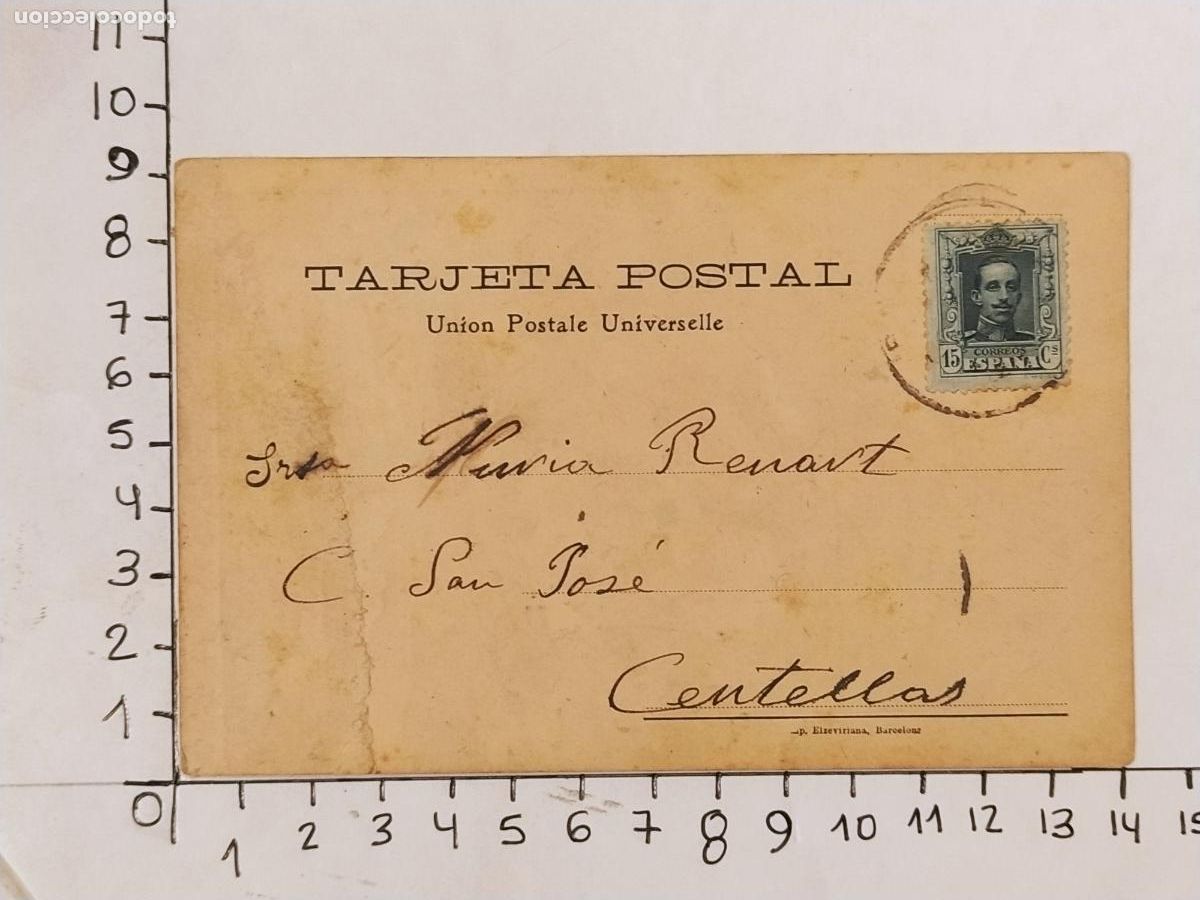 todocoleccion
11
10
9
8
7
6
5
4
3
2
1
0
TARJETA POSTAL
Unión Postale Universelle
15 CORREOS Cs
ESPAÑA
Srta Nuria Renart
C. San José 1
Centellas
p. Elzeviriana, Barcelona
1 2 3 4 5 6 7 8 9 10 11 12 13 14 15